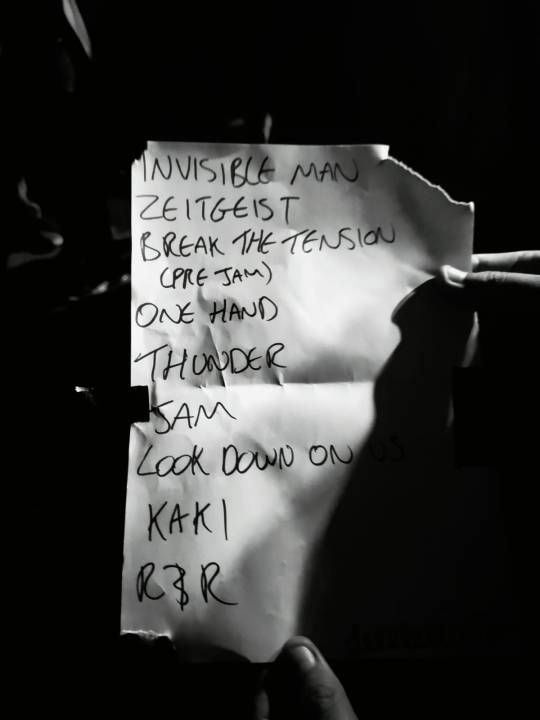 INVISIBLE MAN
ZEITGEIST
BREAK THE TENSION
(PRE JAM)
ONE HAND
THUNDER
JAM
LOOK DOWN ON US
KAKI
R&R